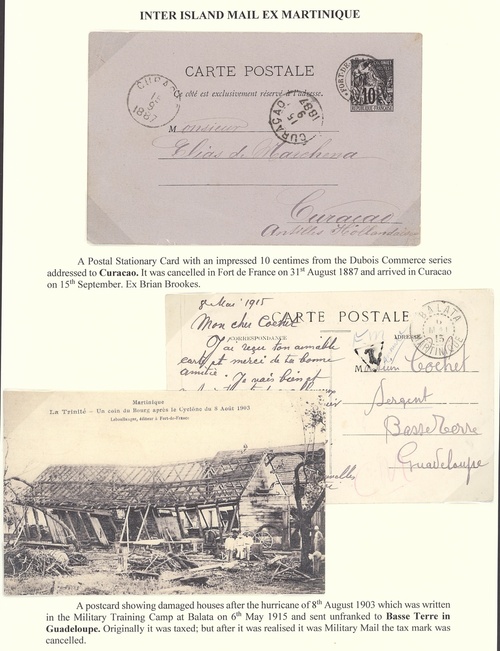 INTER ISLAND MAIL EX MARTINIQUE
CARTE POSTALE
Ce côté est exclusivement réservé à l'adresse.
CURAÇAO
1887
CURAÇAO
15
9
1887
FORT-DE-
10
REPUBLIQUE FRANÇAISE
Monsieur
Elias de Marchena
Curacao
Antilles Hollandaises
A Postal Stationary Card with an impressed 10 centimes from the Dubois Commerce series
addressed to Curacao. It was cancelled in Fort de France on 31st August 1887 and arrived in Curacao
on 15th September. Ex Brian Brookes.
8 Mai 1915
CARTE POSTALE
Mon cher Cochet
CORRESPONDANCE
ADRESSE
J'ai reçu ton aimable
carte et merci de ta bonne
amitié. Je vais bien et
BALATA
15
MARTINIQUE
T
Cochet
Sergent
Basse Terre
Guadeloupe
Martinique
La Trinité - Un coin du Bourg après le Cyclône du 8 Août 1903
Leboullanger, éditeur à Fort-de-France
A postcard showing damaged houses after the hurricane of 8th August 1903 which was written
in the Military Training Camp at Balata on 6th May 1915 and sent unfranked to Basse Terre in
Guadeloupe. Originally it was taxed; but after it was realised it was Military Mail the tax mark was
cancelled.